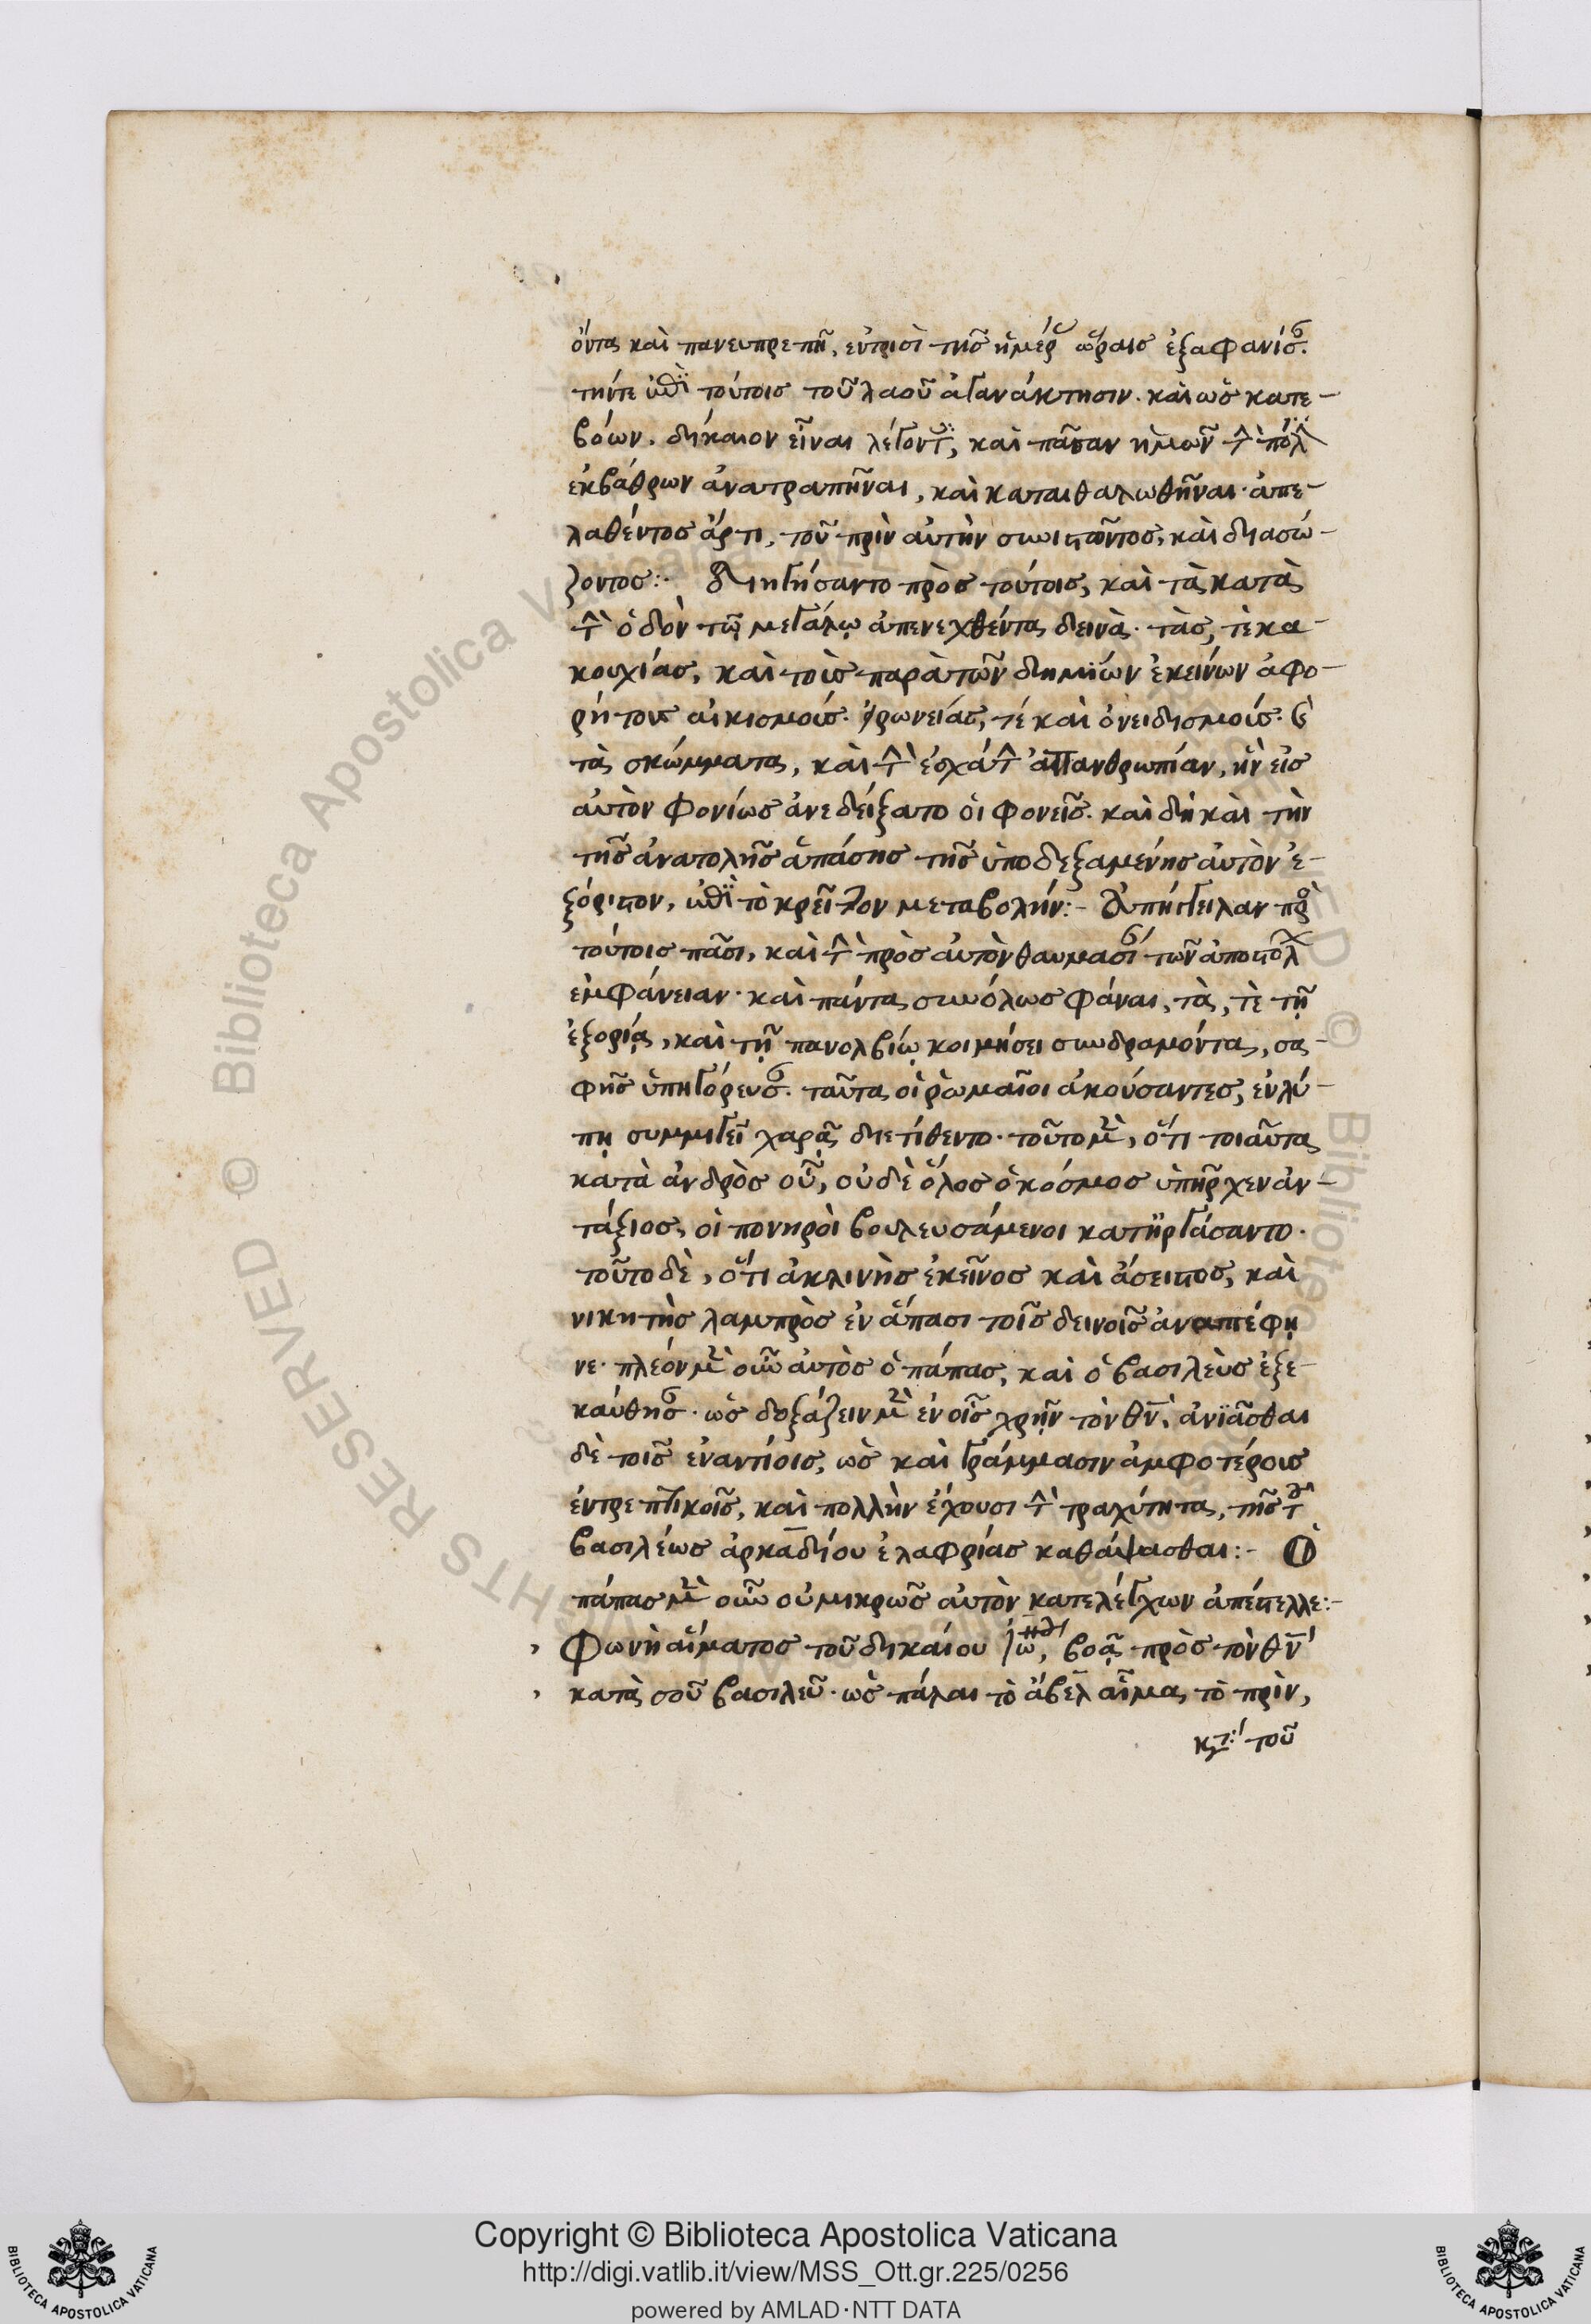 ὄντα καὶ πανευπρεπῆ, ἐν τρισὶ τῆς ἡμέρας ὥραις ἐξαφανίσαν.
τήντε ἐπὶ τούτοις τοῦ λαοῦ ἀγανάκτησιν. καὶ ὡς κατε-
βόων. δίκαιον εἶναι λέγοντες, καὶ πᾶσαν ἡμῶν τὴν πόλιν
ἐκβάθρων ἀνατραπῆναι, καὶ καταιθαλωθῆναι· ἀπε-
λαθέντος ἄρτι, τοῦ πρὶν αὐτὴν συνιστῶντος, καὶ διασώ-
ζοντος:· Διηγήσαντο πρὸς τούτοις, καὶ τὰ κατὰ
τὴν ὁδὸν τῷ μεγάλῳ ἀπενεχθέντα δεινὰ· τὰς, τὲ κα-
κουχίας, καὶ τοὺς παρὰ τῶν δημίων ἐκείνων ἀφο-
ρήτους αἰκισμούς. εἰρωνείας, τέ καὶ ὀνειδισμούς. καὶ
τὰ σκώμματα, καὶ τὴν ἐσχάτην ἀπανθρωπίαν, ἣν εἰς
αὐτὸν φονίως ἀνεδείξατο οἱ φονεῖς. καὶ δὴ καὶ τὴν
τῆς ἀνατολῆς ἁπάσης τῆς ὑποδεξαμένης αὐτὸν ἐ-
ξόριστον, ἐπὶ τὸ κρεῖττον μεταβολήν:- Ἀπήγγειλαν πρὸς
τούτοις πᾶσι, καὶ τὴν πρὸς αὐτὸν θαυμασίαν τῶν ἀποστόλων
ἐμφάνειαν· καὶ πάντα συνόλως φάναι, τὰ, τὲ τῇ
ἐξορίᾳ, καὶ τῇ πανολβίῳ κοιμήσει συνδραμόντα, σα-
φῆς ὑπηγόρευσαν. ταῦτα οἱ ῥωμαῖοι ἀκούσαντες, ἐν λύ-
πῃ συμμιγεῖ χαρᾷ διετίθεντο· τοῦτο μὲν, ὅτι τοιαῦτα
κατὰ ἀνδρὸς οὗ, οὐδὲ ὅλος ὁ κόσμος ὑπῆρχεν ἀν-
τάξιος, οἱ πονηροὶ βουλευσάμενοι κατηργάσαντο.
τοῦτο δὲ, ὅτι ἀκλινὴς ἐκεῖνος καὶ ἄσειστος, καὶ
νικητὴς λαμπρὸς ἐν ἅπασι τοῖς δεινοῖς ἀναπέφη
νε· πλεόν μὲν οὖν αὐτὸς ὁ πάπας, καὶ ὁ βασιλεὺς ἐξε-
καύθησαν. ὡς δοξάζειν μὲν ἐν οἷς χρῆν τὸν θν̄, ἀνιᾶσθαι
δὲ τοῖς ἐναντίοις, ὡς καὶ γράμμασιν ἀμφοτέροις
ἐντρεπτικοῖς, καὶ πολλὴν ἔχουσι τὴν τραχύτητα, τῆς τοῦ
βασιλέως ἀρκαδίου ἐλαφρίας καθάψασθαι:- Ὁ
πάπας μὲν οὖν οὐ μικρῶς αὐτὸν κατελέγχων ἀπέστελλε:-
Φωνὴ αἵματος τοῦ δικαίου ἰω, βοᾷ πρὸς τὸν θν̄
κατὰ σοῦ βασιλεῦ· ὡς πάλαι τὸ ἄβελ αἷμα, τὸ πρὶν,
κατὰ τοῦ
Copyright © Biblioteca Apostolica Vaticana
http://digi.vatlib.it/view/MSS_Ott.gr.225/0256
powered by AMLAD·NTT DATA